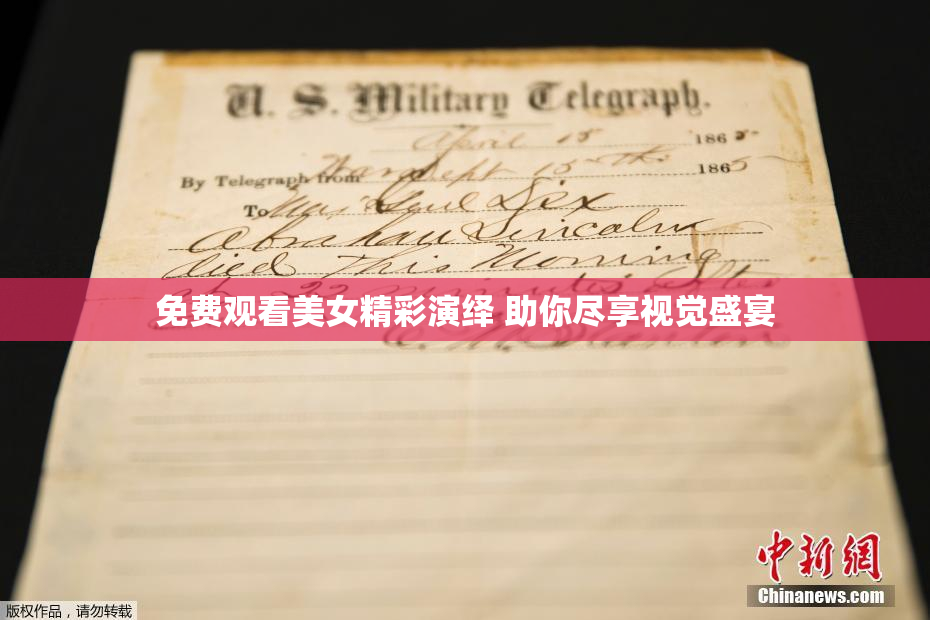 U. S. Military Telegraph.
April 15 1865
By Telegraph from War Dept 15th 1865
To Maj Genl Dix
Abraham Lincoln
died This Morning
at 22 minutes after
免费观看美女精彩演绎 助你尽享视觉盛宴
E. M. Stanton
中新网
Chinanews.com
版权作品，请勿转载